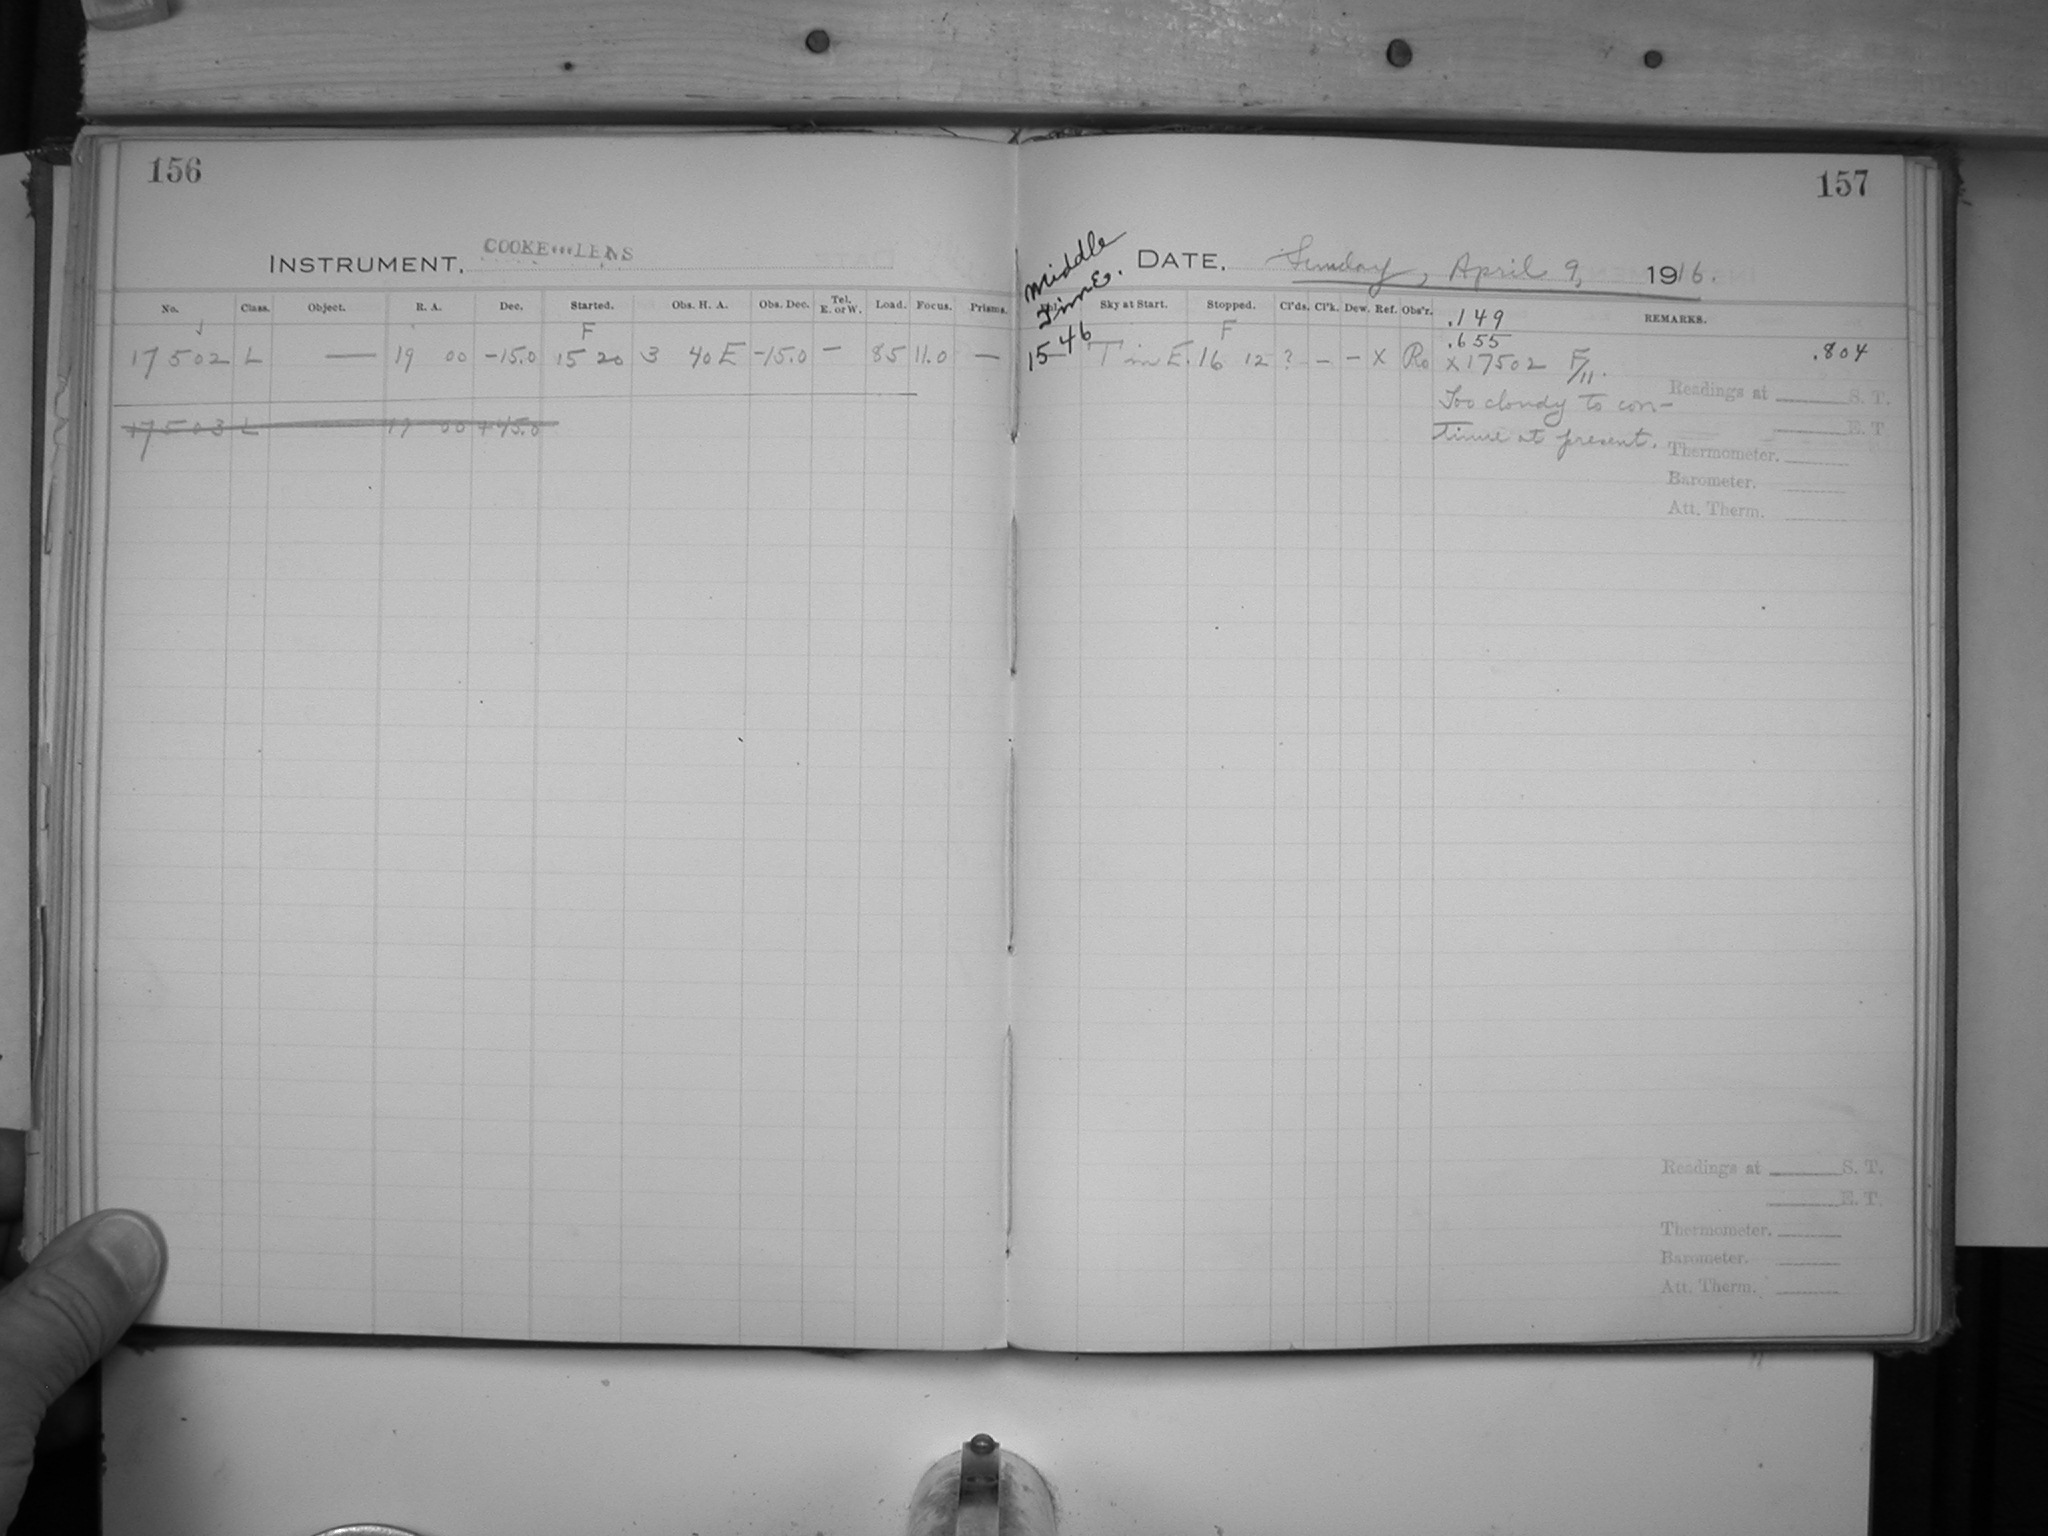 156
INSTRUMENT, COOKE LENS
No. Class. Object. R. A. Dec. Started. Obs. H. A. Obs. Dec. Tel. E. or W. Load. Focus. Prisms.
F
17502 L — 19 00 -15.0 15 20 3 40 E -15.0 — 85 11.0 —
17503 L 19 00 +45.0
157
Middle
Time.
15 46
DATE, Sunday, April 9, 1916.
Sky at Start. Stopped. Cl'ds. Cl'k. Dew. Ref. Obs'r. REMARKS.
.149
F .655
16 12 ? — — X Ro X 17502 F/11. .804
Too cloudy to con-
tinue at present.
Readings at ______ S. T.
______ E. T
Thermometer. ______
Barometer. ______
Att. Therm. ______
Readings at ______ S. T.
______ E. T.
Thermometer. ______
Barometer. ______
Att. Therm. ______